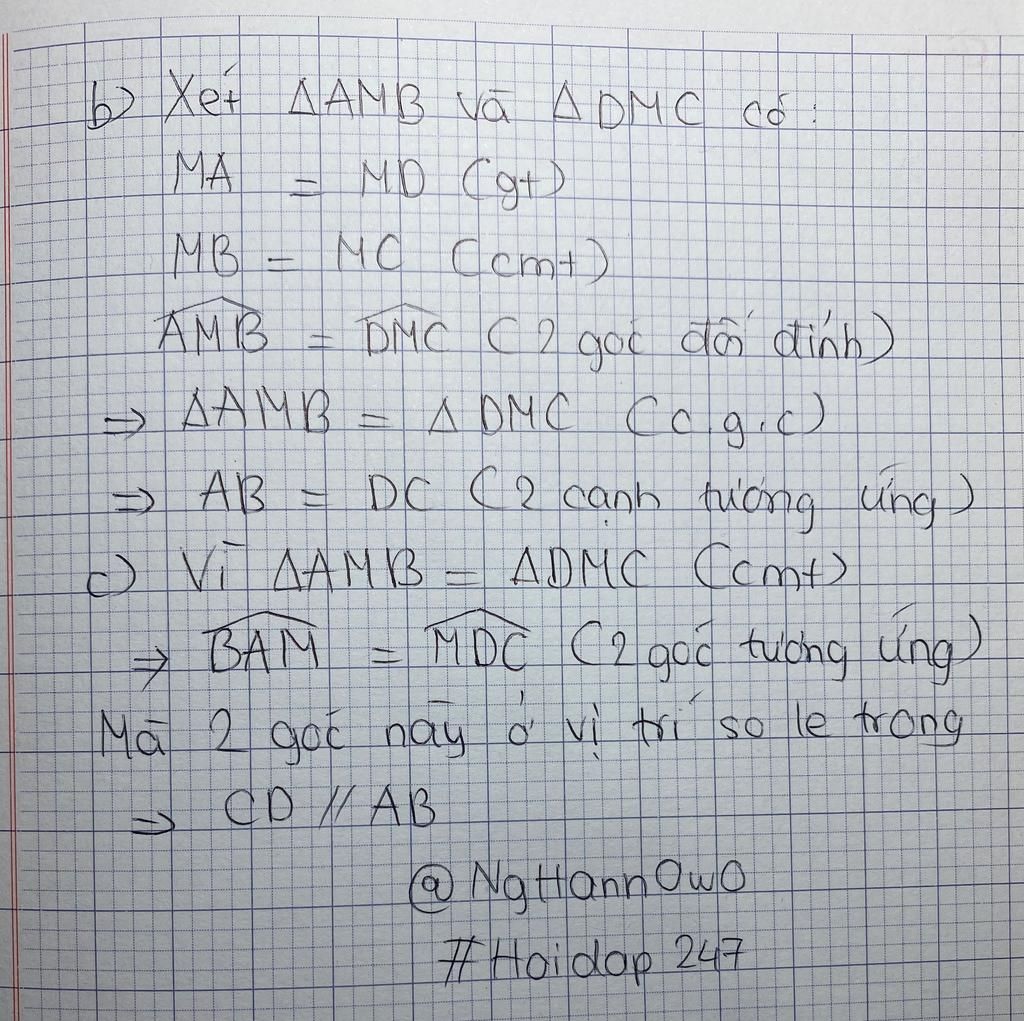 b) Xét ΔAMB và ΔDMC có:
MA = MD (gt)
MB = MC (cmt)
\widehat{AMB} = \widehat{DMC} (2 góc đối đỉnh)
⇒ ΔAMB = ΔDMC (c.g.c)
⇒ AB = DC (2 cạnh tương ứng)
c) Vì ΔAMB = ΔDMC (cmt)
⇒ \widehat{BAM} = \widehat{MDC} (2 góc tương ứng)
Mà 2 góc này ở vị trí so le trong
⇒ CD // AB
@NgttannOwO
#Hoidap 247